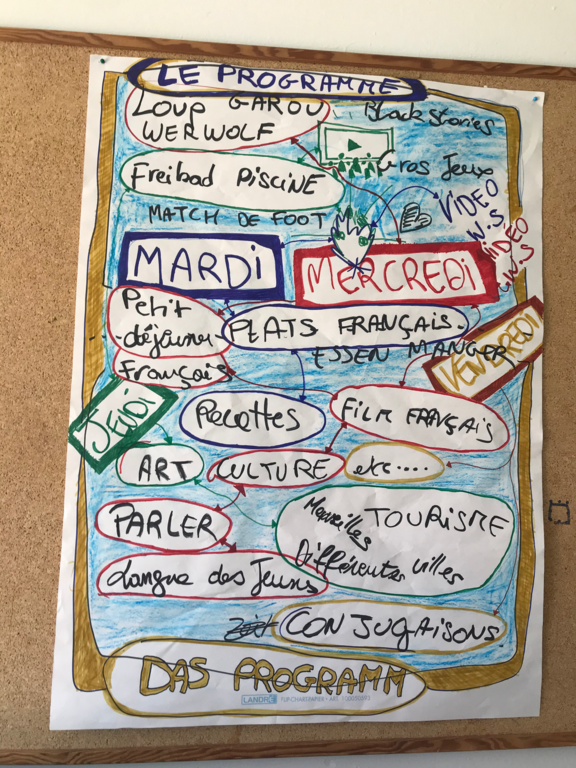 LE PROGRAMME
LOUP GAROU
WERWOLF
Black Stories
Freibad PISCINE
Gros Jeux
MATCH DE FOOT
VIDEO
W.S
VIDEO
W.S
MARDI
MERCREDI
Petit
déjeuner
Français
PLATS FRANÇAIS.
ESSEN MANGER
VENDREDI
JEUDI
Recettes
FILM FRANÇAIS
ART
CULTURE
etc....
PARLER
Merveilles
TOURISME
Différentes villes
Langue des Jeunes
CONJUGAISONS
DAS PROGRAMM